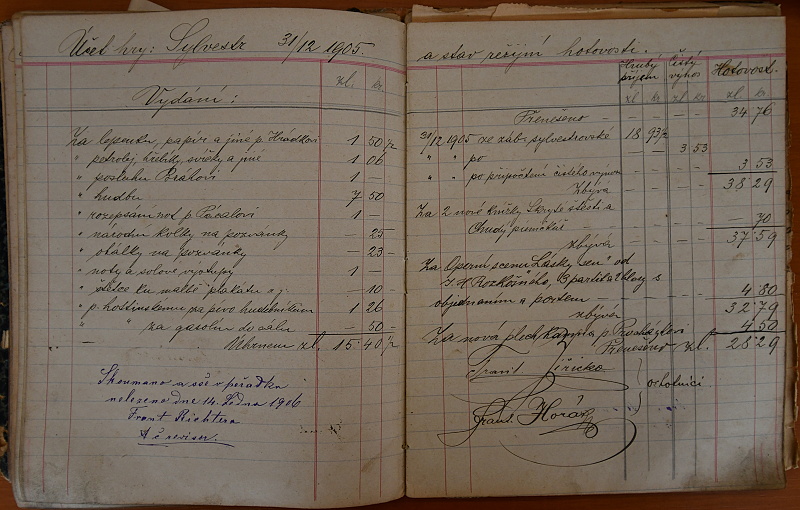 Účet hry: Sylvestr 31/12 1905.
zl. kr.
Vydání:
Za lepenku, papír a jiné p. Hrádkovi 1 50 1/2
" petrolej, hřebíky, svíčky a jiné 1 06
" posluhu Borálovi 1 —
" hudbu 7 50
" rozepsaní not p. Pácalovi 1 —
" národní kolky na pozvánky — 25
" obálky na pozvánky — 23
" noty a solové výstupy 1 —
" štětce ku malbě plakátu — 10
" p. hostinskému za pivo hudebníkům 1 26
" " za gasolin do sálu — 50
Úhrnem zl. 15 40 1/2
Skoumáno a vše v pořádku
nalezeno dne 14. Ledna 1906
Frant Richtera
revisor.
a stav režijní hotovosti.
Hrubý příjem Čistý výnos Hotovost.
zl kr zl kr zl kr
Přenešeno 34 76
31/12 1905 ze záb. sylvestrovské 18 93 1/2
" " po 3 53
" " po připočtení čistého výnosu 3 53
Zbývá 38 29
Za 2 nové knížky Skryté štěstí a
Chudý písničkář — 70
zbývá 37 59
Za Operní scenu Lásky sen od
J. H. Rozkošného, partita 2 hlasy s
objednáním a portem 4 80
zbývá 32 79
Za nová plech. kamna p. Procházkovi 4 50
Přenešeno zl. 28 29
Frant Jiřička
Frant. Horák